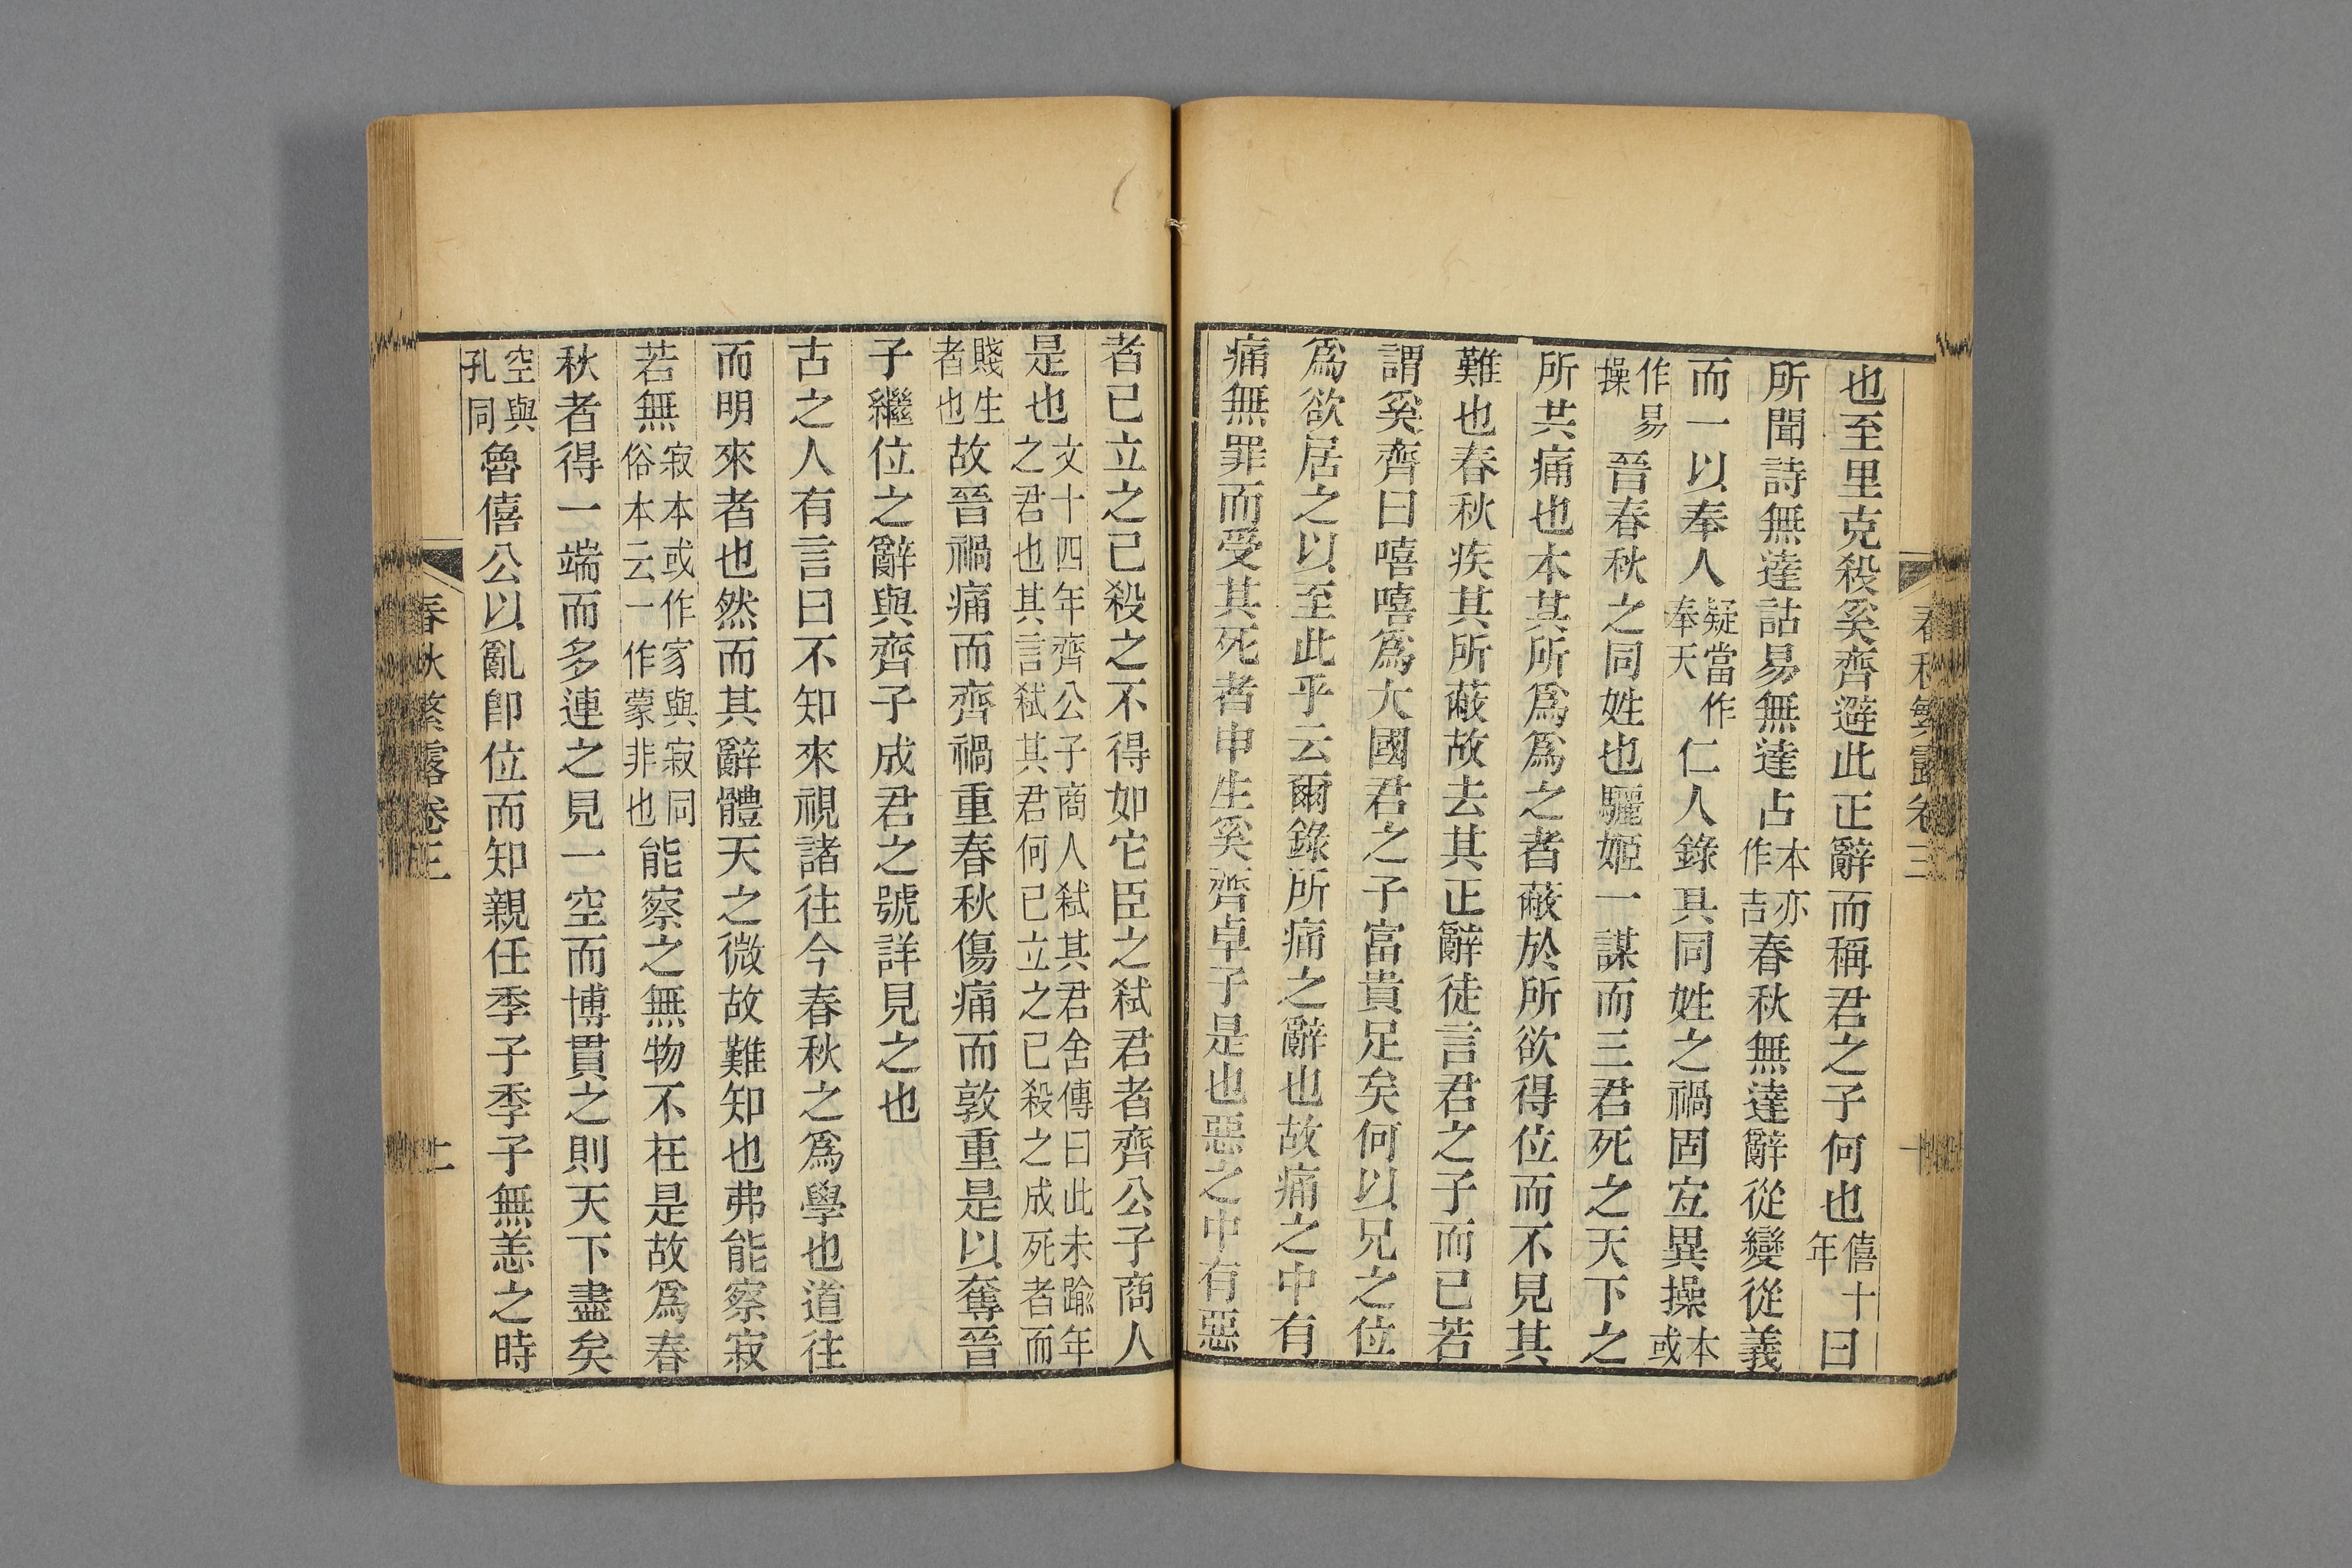 春秋繁露卷三 十
也至里克殺奚齊避此正辭而稱君之子何也僖十年曰
所聞詩無達詁易無達占本亦作吉春秋無達辭從變從義
而一以奉人疑當作奉天仁人錄其同姓之禍固宐異操本或
作易操晉春秋之同姓也驪姬一謀而三君死之天下之
所共痛也本其所爲爲之者蔽於所欲得位而不見其
難也春秋疾其所蔽故去其正辭徒言君之子而已若
謂奚齊曰嘻嘻爲大國君之子富貴足矣何以兄之位
爲欲居之以至此乎云爾錄所痛之辭也故痛之中有
痛無罪而受其死者申生奚齊卓子是也惡之中有惡
者已立之已殺之不得如它臣之弑君者齊公子商人
是也文十四年齊公子商人弑其君舍傳曰此未踰年之君也其言弑其君何已立之已殺之成死者而
賤生者也故晉禍痛而齊禍重春秋傷痛而敦重是以奪晉
子繼位之辭與齊子成君之號詳見之也
古之人有言曰不知來視諸往今春秋之爲學也道往
而明來者也然而其辭體天之微故難知也弗能察寂
若無寂本或作家與寂同俗本云一作蒙非也能察之無物不在是故爲春
秋者得一端而多連之見一空而博貫之則天下盡矣
空與孔同魯僖公以亂卽位而知親任季子季子無恙之時
春秋繁露卷三 十一